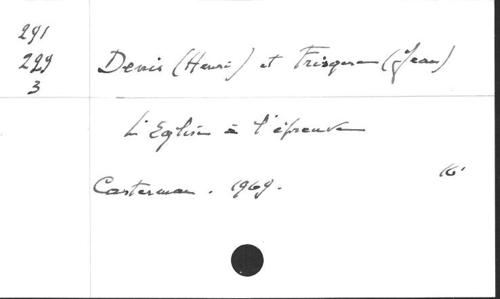 291
229
3
Denis (Henri) et Frisque (Jean)
L'Eglise à l'épreuve
16.
Casterman. 1969.